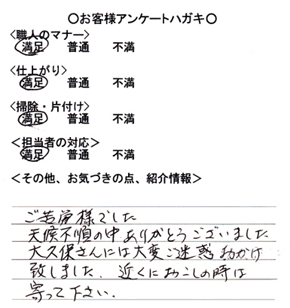 ○お客様アンケートハガキ○
<職人のマナー>
満足 普通 不満
<仕上がり>
満足 普通 不満
<掃除・片付け>
満足 普通 不満
<担当者の対応>
満足 普通 不満
<その他、お気づきの点、紹介情報>
ご苦労様でした
天候不順の中ありがとうございました
大久保さんには大変ご迷惑おかけ
致しました、近くにおこしの時は
寄って下さい.